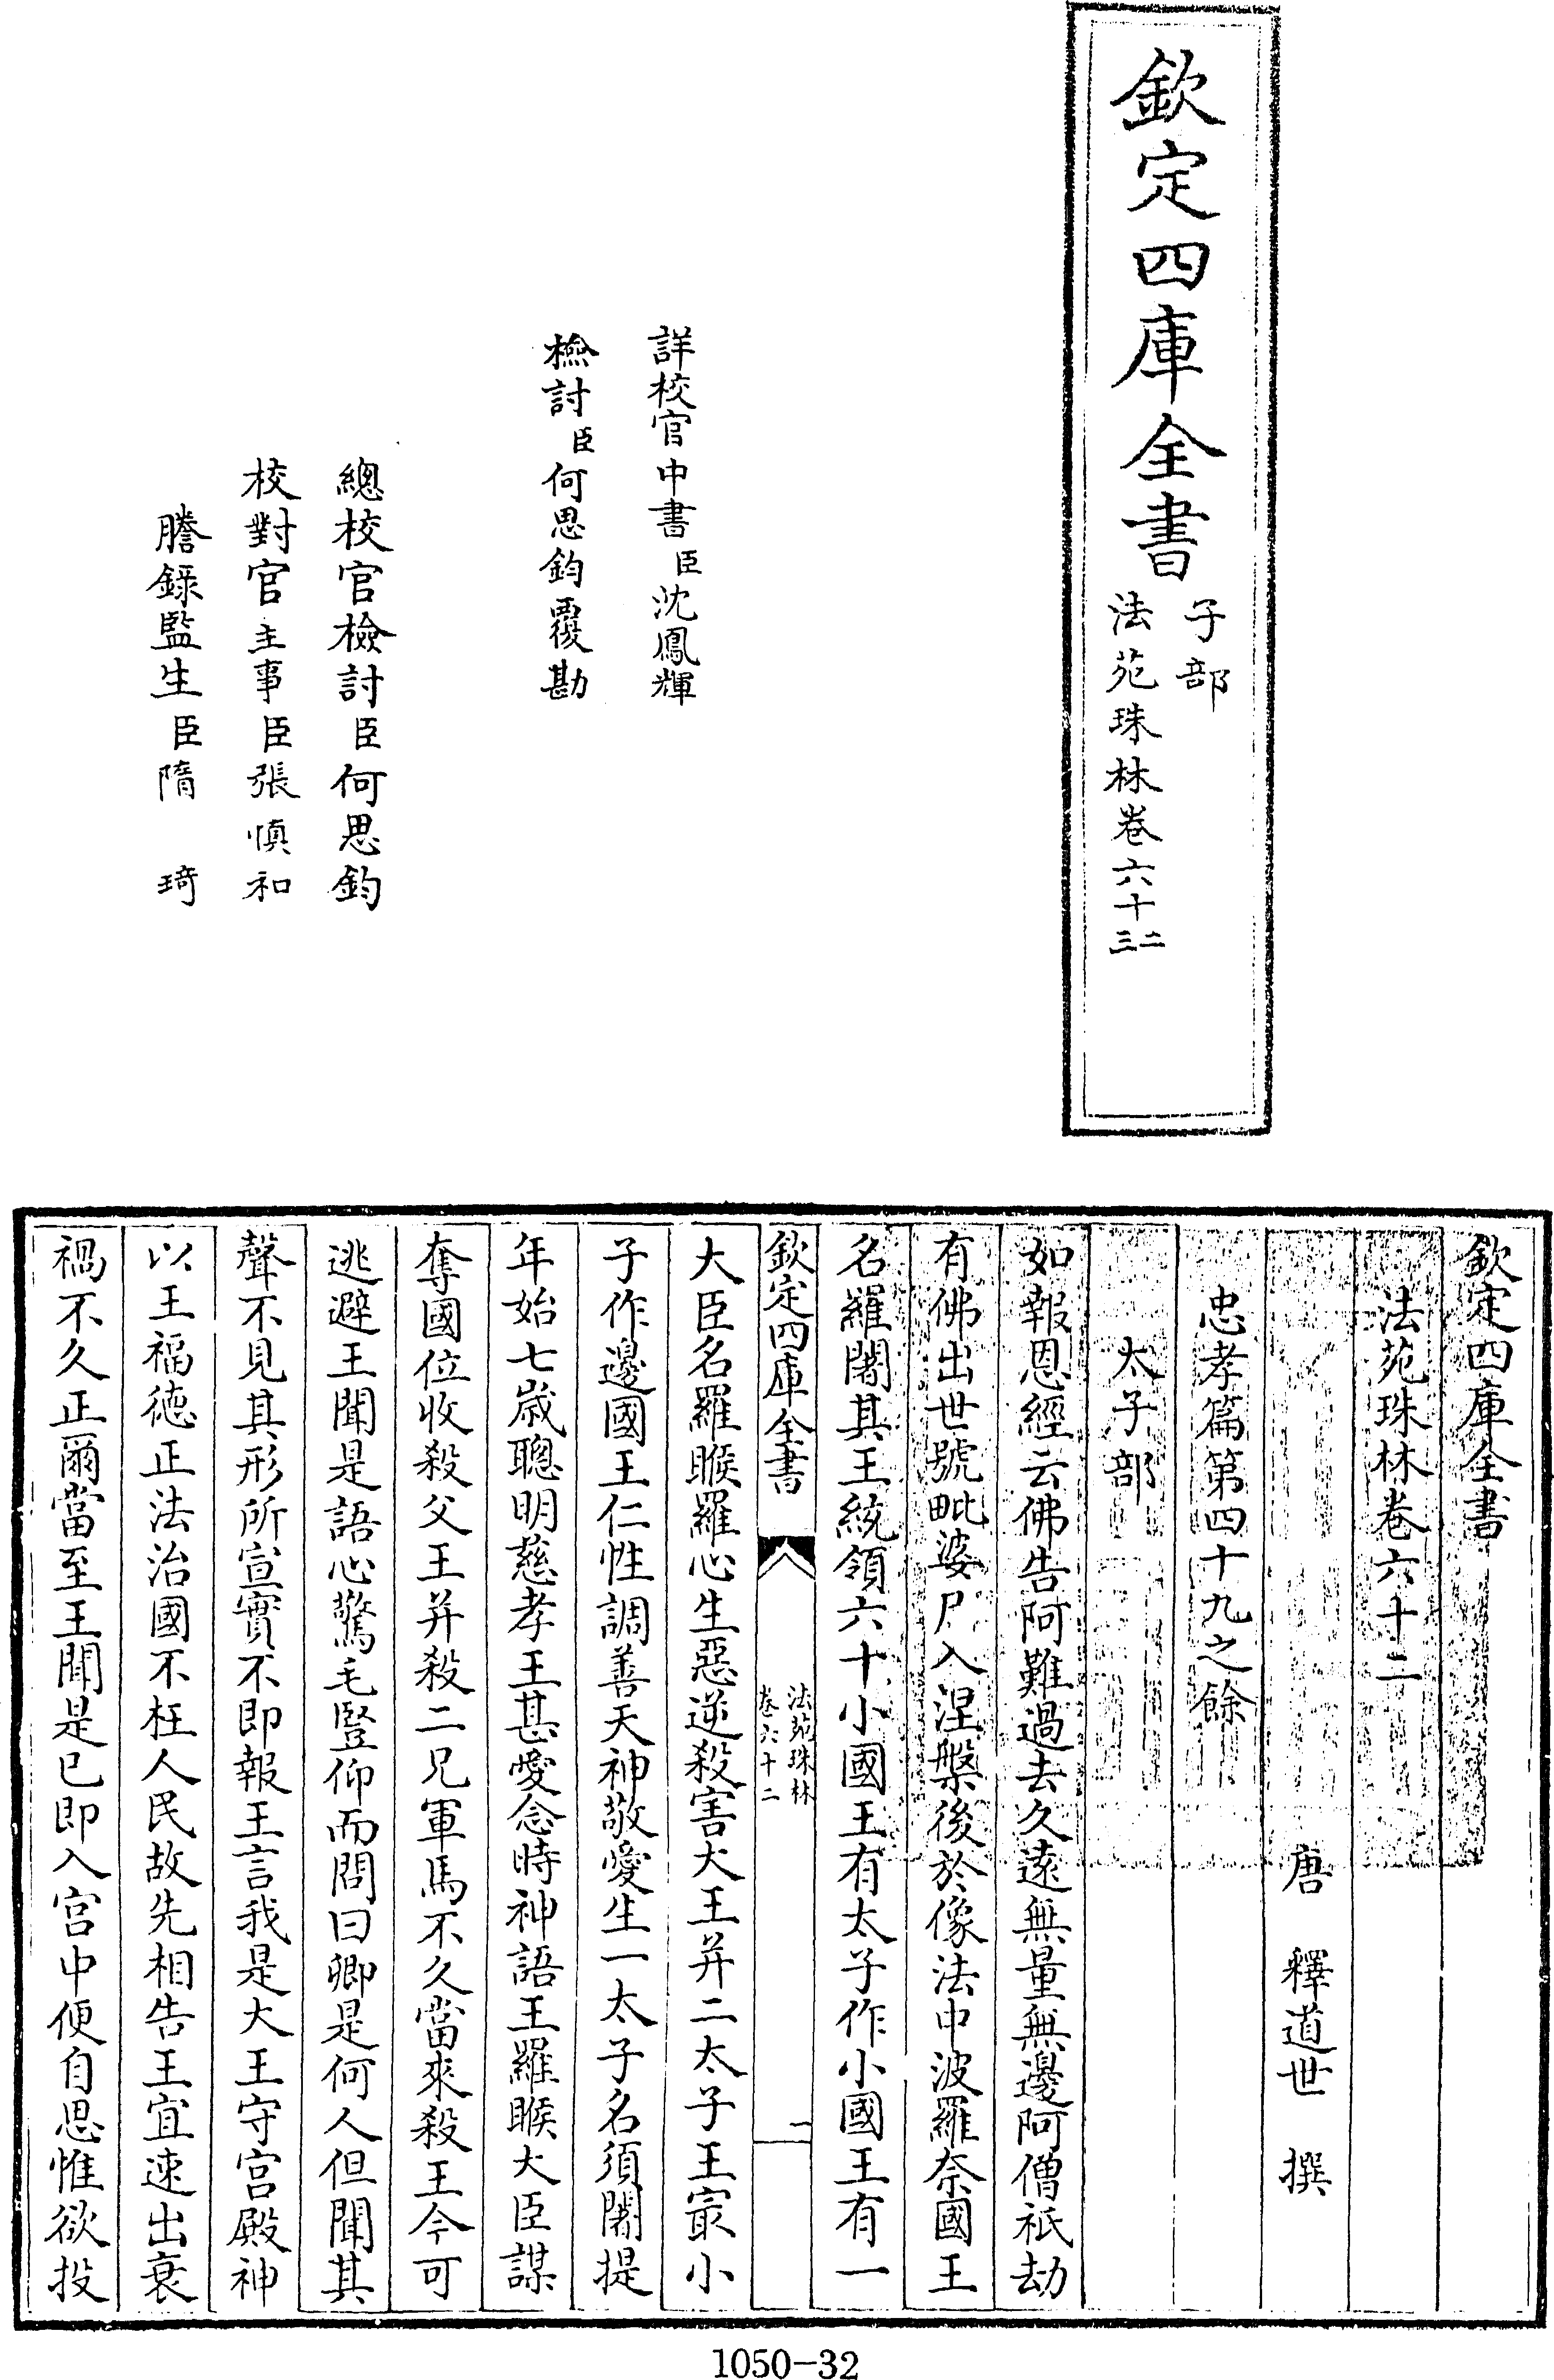 欽定四庫全書
子部
法苑珠林卷六十二三
詳校官中書臣沈鳳輝
檢討臣何思鈞覆勘
總校官檢討臣何思鈞
校對官主事臣張慎和
謄錄監生臣隋琦
欽定四庫全書
法苑珠林卷六十二
唐 釋道世 撰
忠孝篇第四十九之餘
太子部
如報恩經云佛告阿難過去久遠無量無邊阿僧祇劫
有佛出世號毗婆尸入涅槃後於像法中波羅奈國王
名羅闍其王統領六十小國王有太子作小國王有一
欽定四庫全書
法苑珠林
卷六十二
一
大臣名羅睺羅心生惡逆殺害大王并二太子王㝡小
子作邊國王仁性調善天神敬愛生一太子名須闍提
年始七歲聰明慈孝王甚愛念時神語王羅睺大臣謀
奪國位收殺父王并殺二兄軍馬不久當來殺王今可
逃避王聞是語心驚毛豎仰而問曰卿是何人但聞其
聲不見其形所宣實不即報王言我是大王守宫殿神
以王福徳正法治國不枉人民故先相告王宜速出衰
禍不久正爾當至王聞是已即入宫中便自思惟欲投
1050-32